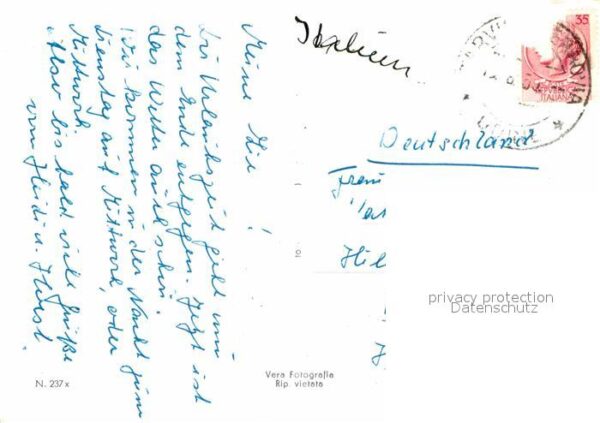 Meine Lie !
Die Urlaubszeit geht nun
dem Ende entgegen. Jetzt ist
das Wetter auch schön.
Wir kommen in der Nacht zum
Dienstag auf Mittwoch, oder
Mittwoch.
Also bis bald viele Grüße
von Heidi u. Horst.
Italien
35
Deutschland
Frau
Hil
privacy protection
Datenschutz
Vera Fotografia
Rip. vietata
N. 237 x